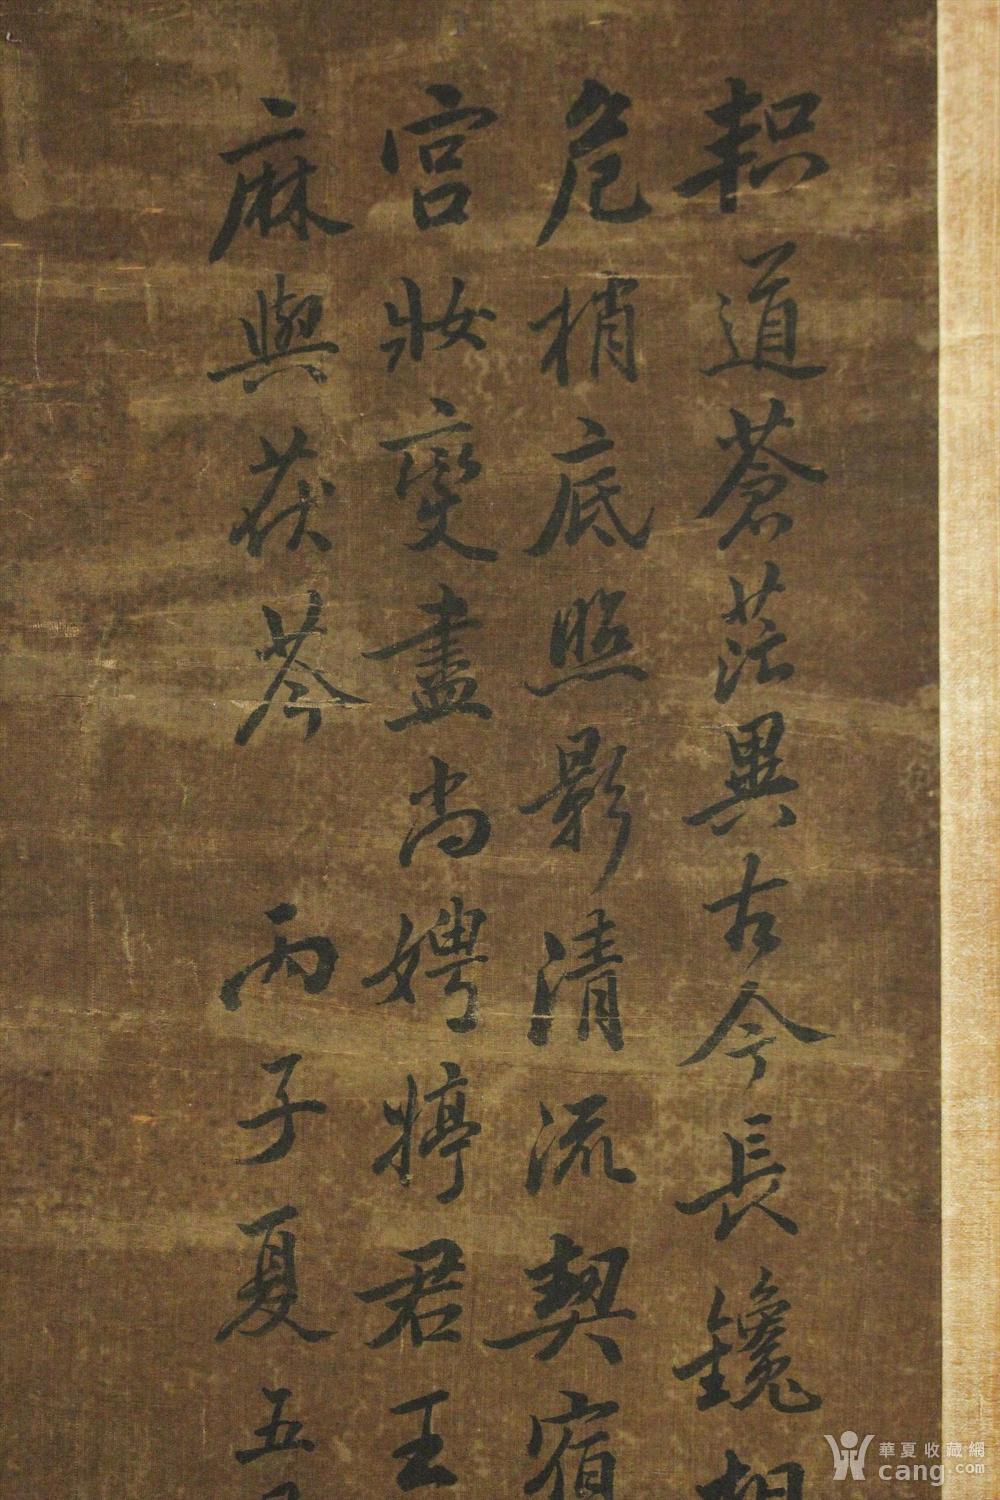 軹道蒼茫異古今長鑱相
危梢底照影清流契宿
宮妝變盡尚娉婷君王
麻與茯苓 丙子夏五
華夏收藏網
cang.com